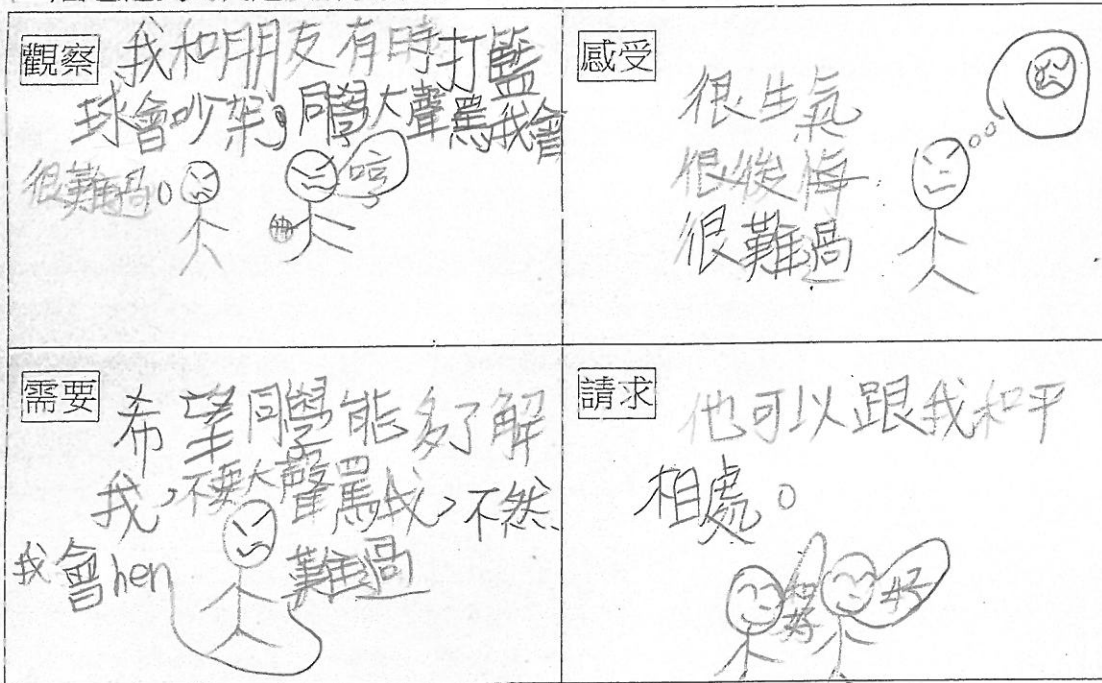 觀察
我和朋友有時打籃
球會吵架，同學大聲罵我會
很難過。
哼
感受
很生氣
很後悔
很難過
需要
希望同學能多了解
我，不要大聲罵我，不然
我會hen難過
請求
他可以跟我和平
相處。
好